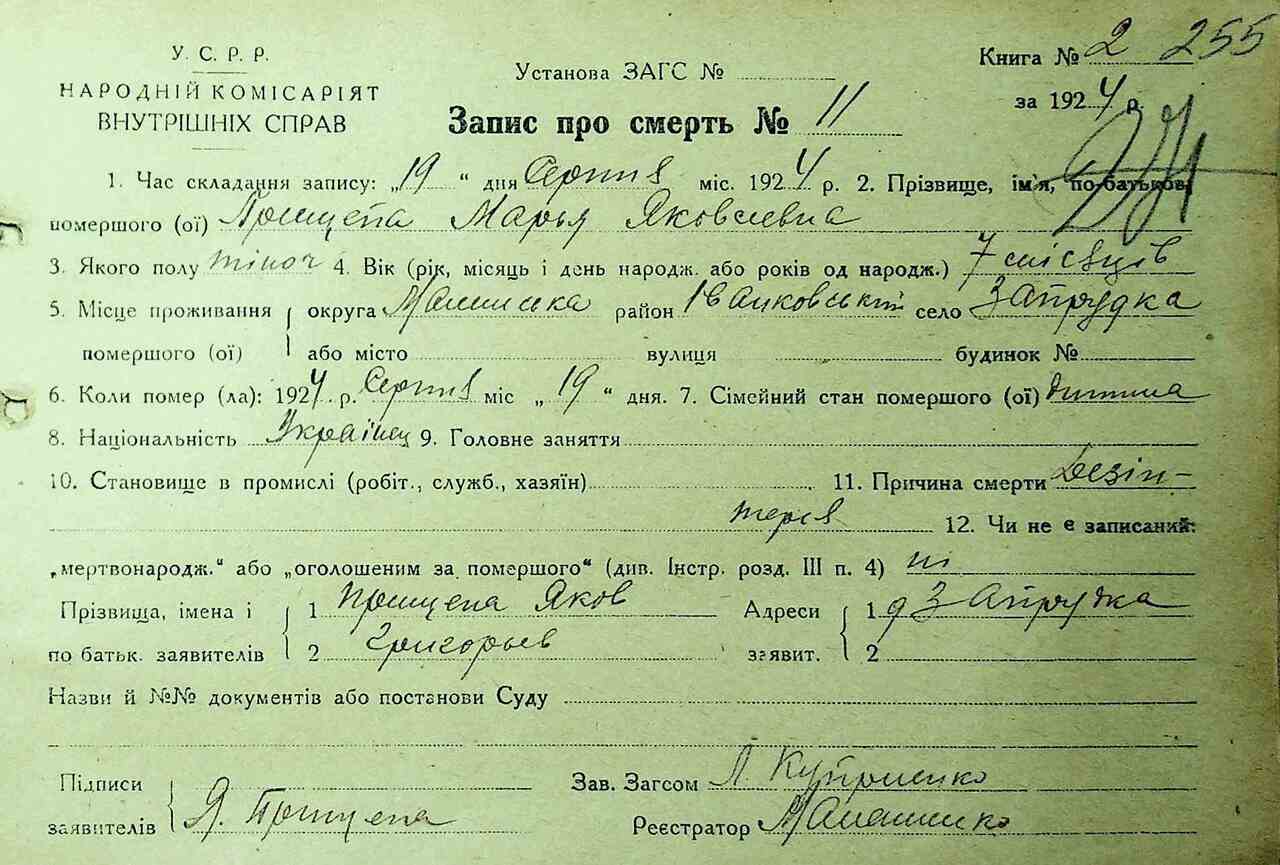 У. С. Р. Р.
НАРОДНІЙ КОМІСАРІЯТ
ВНУТРІШНІХ СПРАВ
Установа ЗАГС №
Запис про смерть № 11
Книга № 2 255
за 1924 р.
1. Час складання запису: „19 “ дня Серпня міс. 1924 р. 2. Прізвище, ім'я, по-батькові
помершого (ої) Прищепа Марья Яковлевна
3. Якого полу жіноч 4. Вік (рік, місяць і день народж. або років од народж.) 7 місяців
5. Місце проживання округа район село Запрудка
помершого (ої) або місто вулиця будинок №
6. Коли помер (ла): 1924 р. Серпня міс „ 19 “ дня. 7. Сімейний стан помершого (ої) дитина
8. Національність Українец 9. Головне заняття
10. Становище в промислі (робіт., служб., хазяїн) 11. Причина смерти Дезін-
терія 12. Чи не є записаний:
„мертвонародж.“ або „оголошеним за помершого“ (див. Інстр. розд. III п. 4) ні
Прізвища, імена і 1 Прищепа Яков Адреси 1 д Запрудка
по батьк. заявителів 2 Григорьев заявит. 2
Назви й №№ документів або постанови Суду
Підписи Зав. Загсом Л. Куприенко
заявителів Я. Прищепа Реєстратор